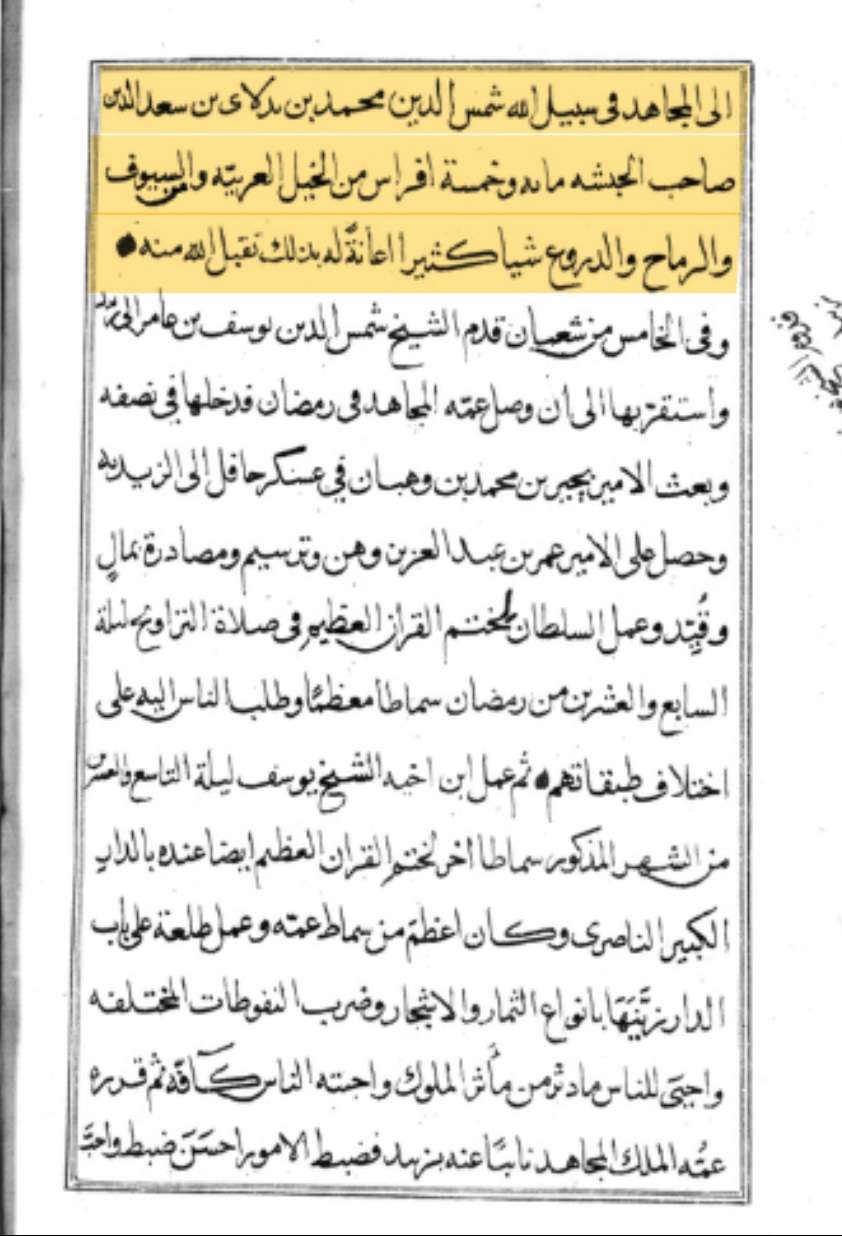 الى المجاهد فى سبيل الله شمس الدين محمد بن بدلاى بن سعد الدين
صاحب الحبشه مايه وخمسة افراس من الخيل العربيّه ومن السيوف
والرماح والدروع شيا كثيرا اعانةً له بذلك تقبل الله منه
وفى الخامس من شعبان قدم الشيخ شمس الدين يوسف بن عامر الى زبيد
واستقرّ بها الى أن وصل عمّه المجاهد فى رمضان فدخلها فى نصفه
وبعث الامير بن محمد بن وهبان في عسكر حافل الى الزيديه
وحصل على الامير عمر بن عبد العزيز وهن وترسيم ومصادرة بمالٍ
وقُيّد وعمل السلطان لختم القران العظيم فى صلاة التراويح ليلة
السابع والعشرين من رمضان سماطا معظمًا وطلب الناس اليه على
اختلاف طبقاتهم ثم عمل ابن اخيه الشيخ يوسف ليلة التاسع والعشرين
من الشهر المذكور سماطا اخر لختم القران العظيم ايضا عنده بالدار
الكبير الناصرى وكان اعظم من سماط عمّه وعمل طلعة على باب
الدار زيَّنَهَا بانواع الثمار والاشجار وضرب النفوطات المختلفه
واحيَى للناس ما دثر من مأثر الملوك واحبته الناس كآفّة ثم قرره
عمُّه الملك المجاهد نائبًا عنه بزبيد فضبط الامور احسَنَ ضبط
قدوم